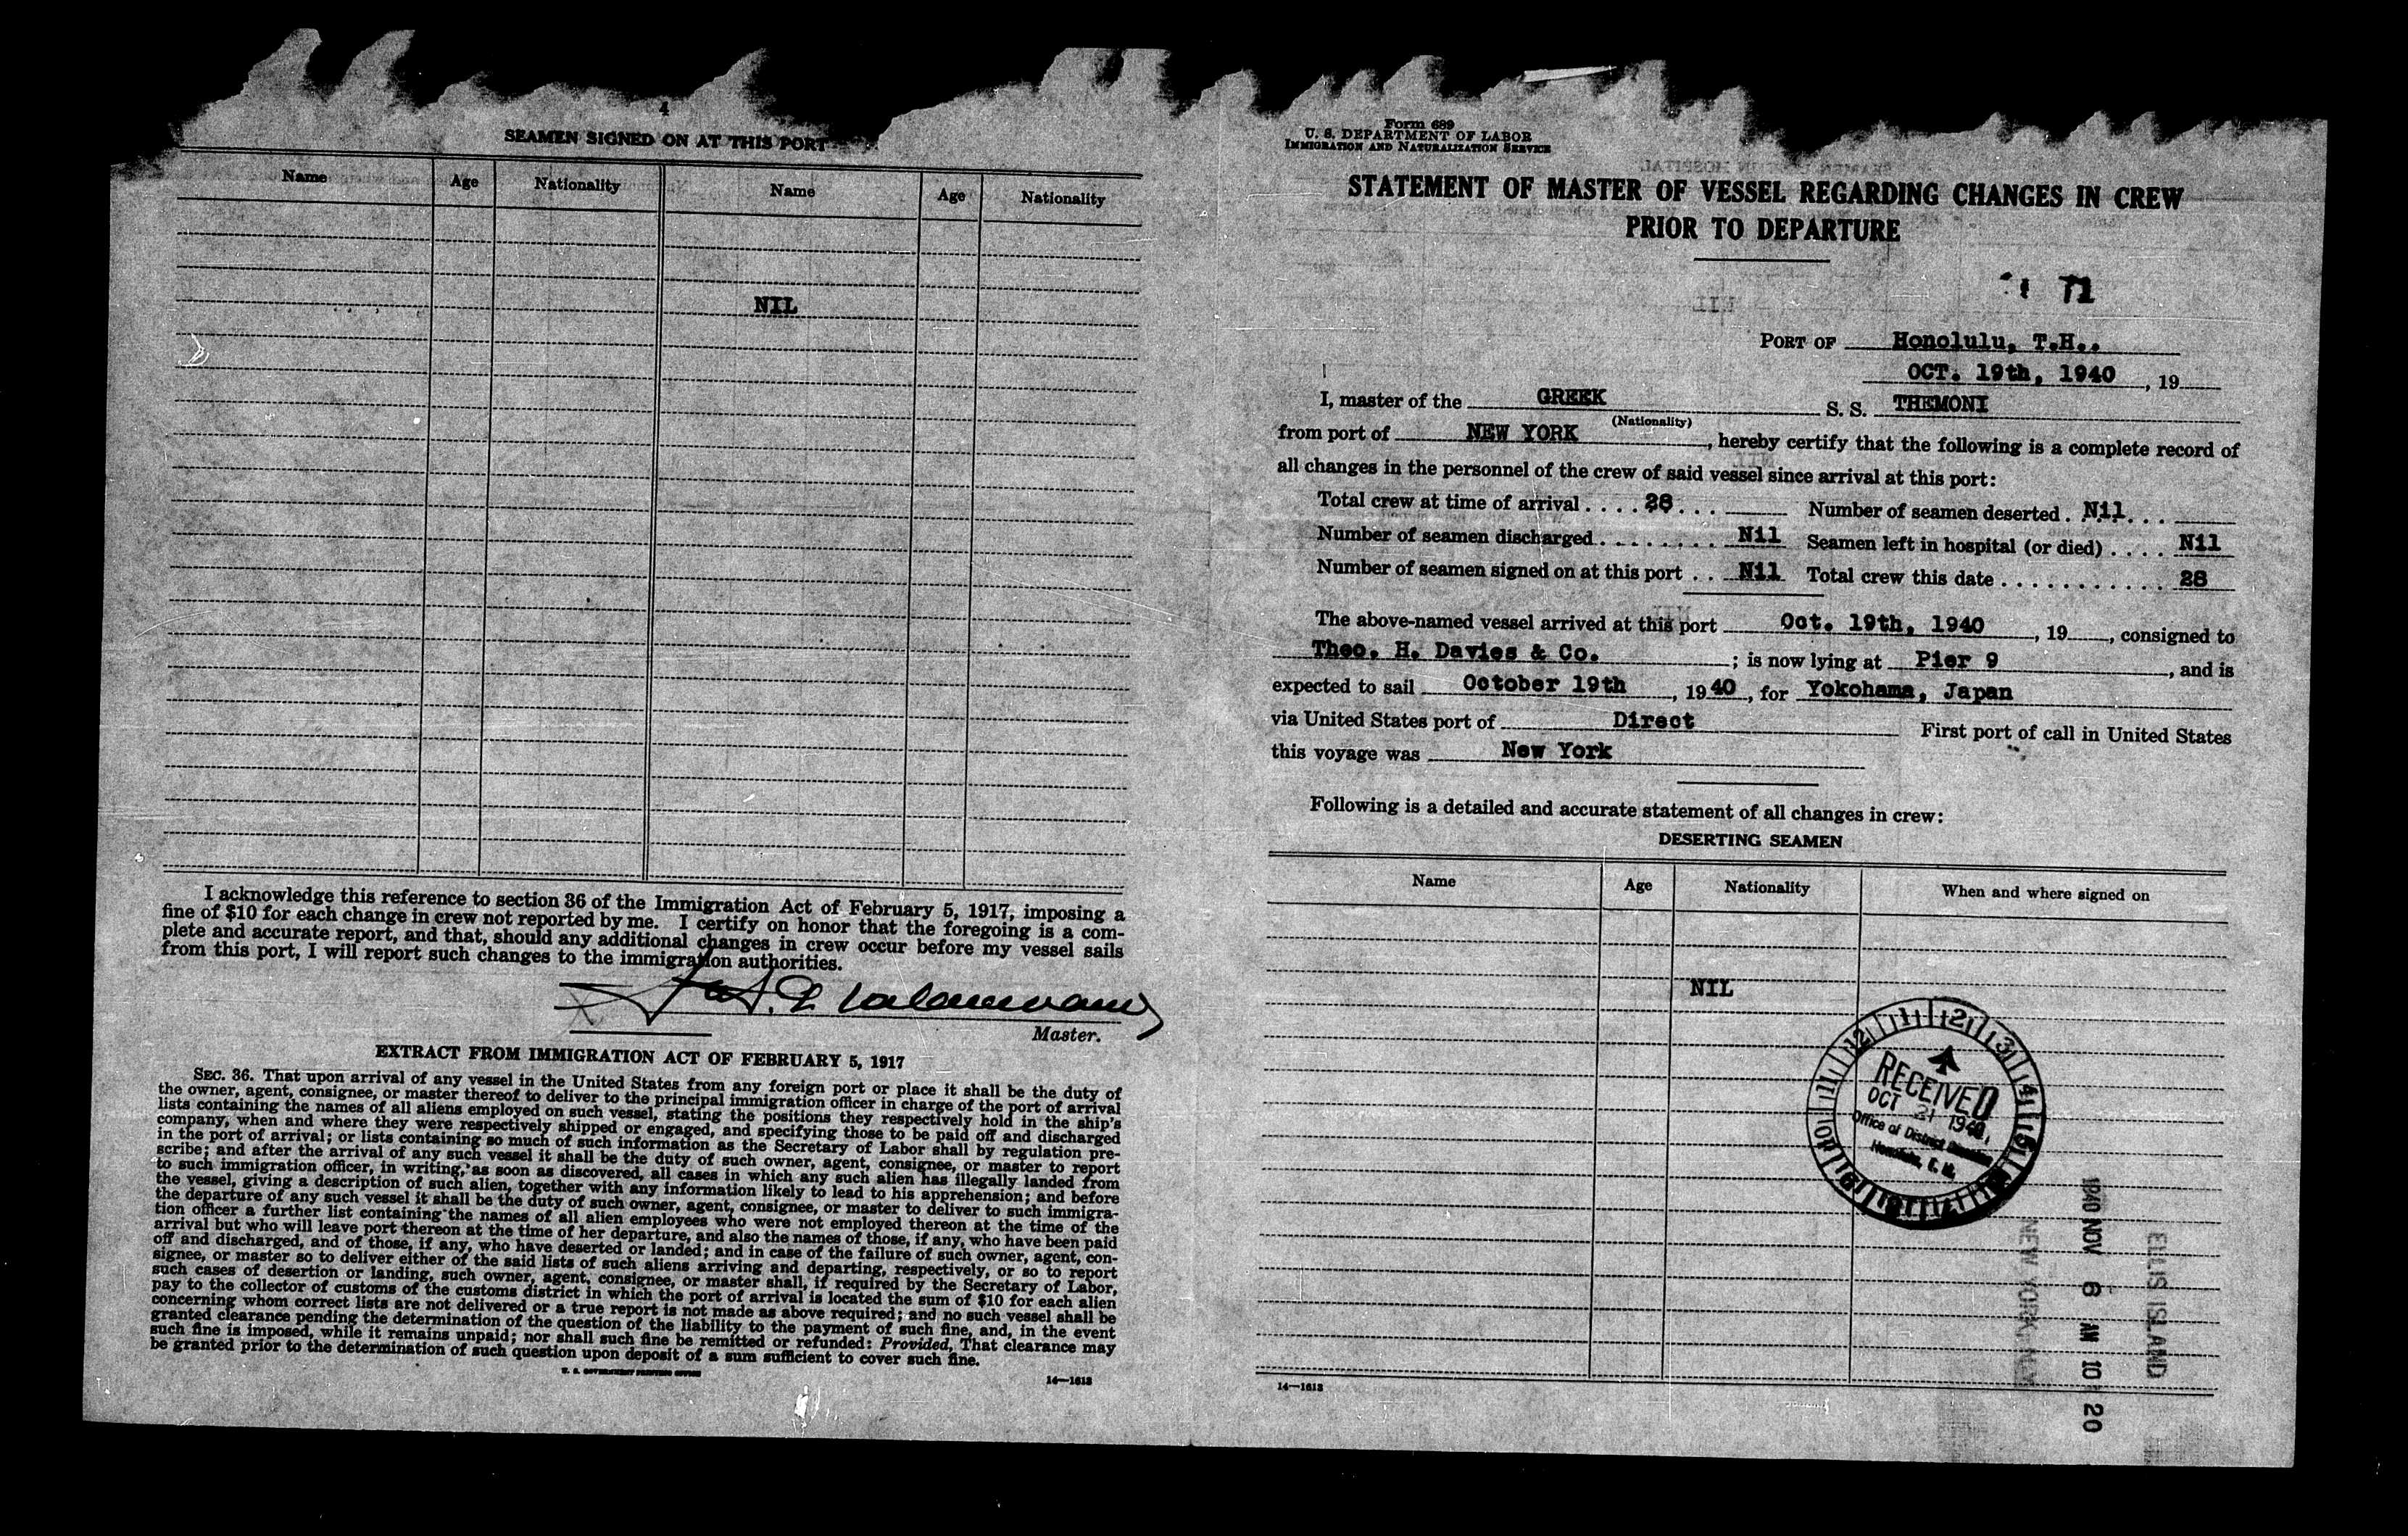 4
SEAMEN SIGNED ON AT THIS PORT
Name Age Nationality Name Age Nationality
NIL
I acknowledge this reference to section 36 of the Immigration Act of February 5, 1917, imposing a
fine of $10 for each change in crew not reported by me. I certify on honor that the foregoing is a com-
plete and accurate report, and that, should any additional changes in crew occur before my vessel sails
from this port, I will report such changes to the immigration authorities.
Master.
EXTRACT FROM IMMIGRATION ACT OF FEBRUARY 5, 1917
SEC. 36. That upon arrival of any vessel in the United States from any foreign port or place it shall be the duty of
the owner, agent, consignee, or master thereof to deliver to the principal immigration officer in charge of the port of arrival
lists containing the names of all aliens employed on such vessel, stating the positions they respectively hold in the ship's
company, when and where they were respectively shipped or engaged, and specifying those to be paid off and discharged
in the port of arrival; or lists containing so much of such information as the Secretary of Labor shall by regulation pre-
scribe; and after the arrival of any such vessel it shall be the duty of such owner, agent, consignee, or master to report
to such immigration officer, in writing, as soon as discovered, all cases in which any such alien has illegally landed from
the vessel, giving a description of such alien, together with any information likely to lead to his apprehension; and before
the departure of any such vessel it shall be the duty of such owner, agent, consignee, or master to deliver to such immigra-
tion officer a further list containing the names of all alien employees who were not employed thereon at the time of the
arrival but who will leave port thereon at the time of her departure, and also the names of those, if any, who have been paid
off and discharged, and of those, if any, who have deserted or landed; and in case of the failure of such owner, agent, con-
signee, or master so to deliver either of the said lists of such aliens arriving and departing, respectively, or so to report
such cases of desertion or landing, such owner, agent, consignee, or master shall, if required by the Secretary of Labor,
pay to the collector of customs of the customs district in which the port of arrival is located the sum of $10 for each alien
concerning whom correct lists are not delivered or a true report is not made as above required; and no such vessel shall be
granted clearance pending the determination of the question of the liability to the payment of such fine, and, in the event
such fine is imposed, while it remains unpaid; nor shall such fine be remitted or refunded: Provided, That clearance may
be granted prior to the determination of such question upon deposit of a sum sufficient to cover such fine.
U. S. GOVERNMENT PRINTING OFFICE 14—1613
Form 689
U. S. DEPARTMENT OF LABOR
IMMIGRATION AND NATURALIZATION SERVICE
STATEMENT OF MASTER OF VESSEL REGARDING CHANGES IN CREW
PRIOR TO DEPARTURE
71
PORT OF Honolulu, T.H..
OCT. 19th, 1940, 19
I, master of the GREEK S. S. THEMONI
(Nationality)
from port of NEW YORK, hereby certify that the following is a complete record of
all changes in the personnel of the crew of said vessel since arrival at this port:
Total crew at time of arrival .... 28 ... Number of seamen deserted . Nil ...
Number of seamen discharged ........ Nil Seamen left in hospital (or died) .... Nil
Number of seamen signed on at this port .. Nil Total crew this date ............ 28
The above-named vessel arrived at this port Oct. 19th, 1940, 19, consigned to
Theo. H. Davies & Co. ; is now lying at Pier 9, and is
expected to sail October 19th, 1940, for Yokohama, Japan
via United States port of Direct First port of call in United States
this voyage was New York
Following is a detailed and accurate statement of all changes in crew:
DESERTING SEAMEN
Name Age Nationality When and where signed on
NIL
RECEIVED
OCT 21 1940
Office of District Director
Honolulu, T. H.
1940 NOV 6 AM 10 20
ELLIS ISLAND
NEW YORK
14—1613